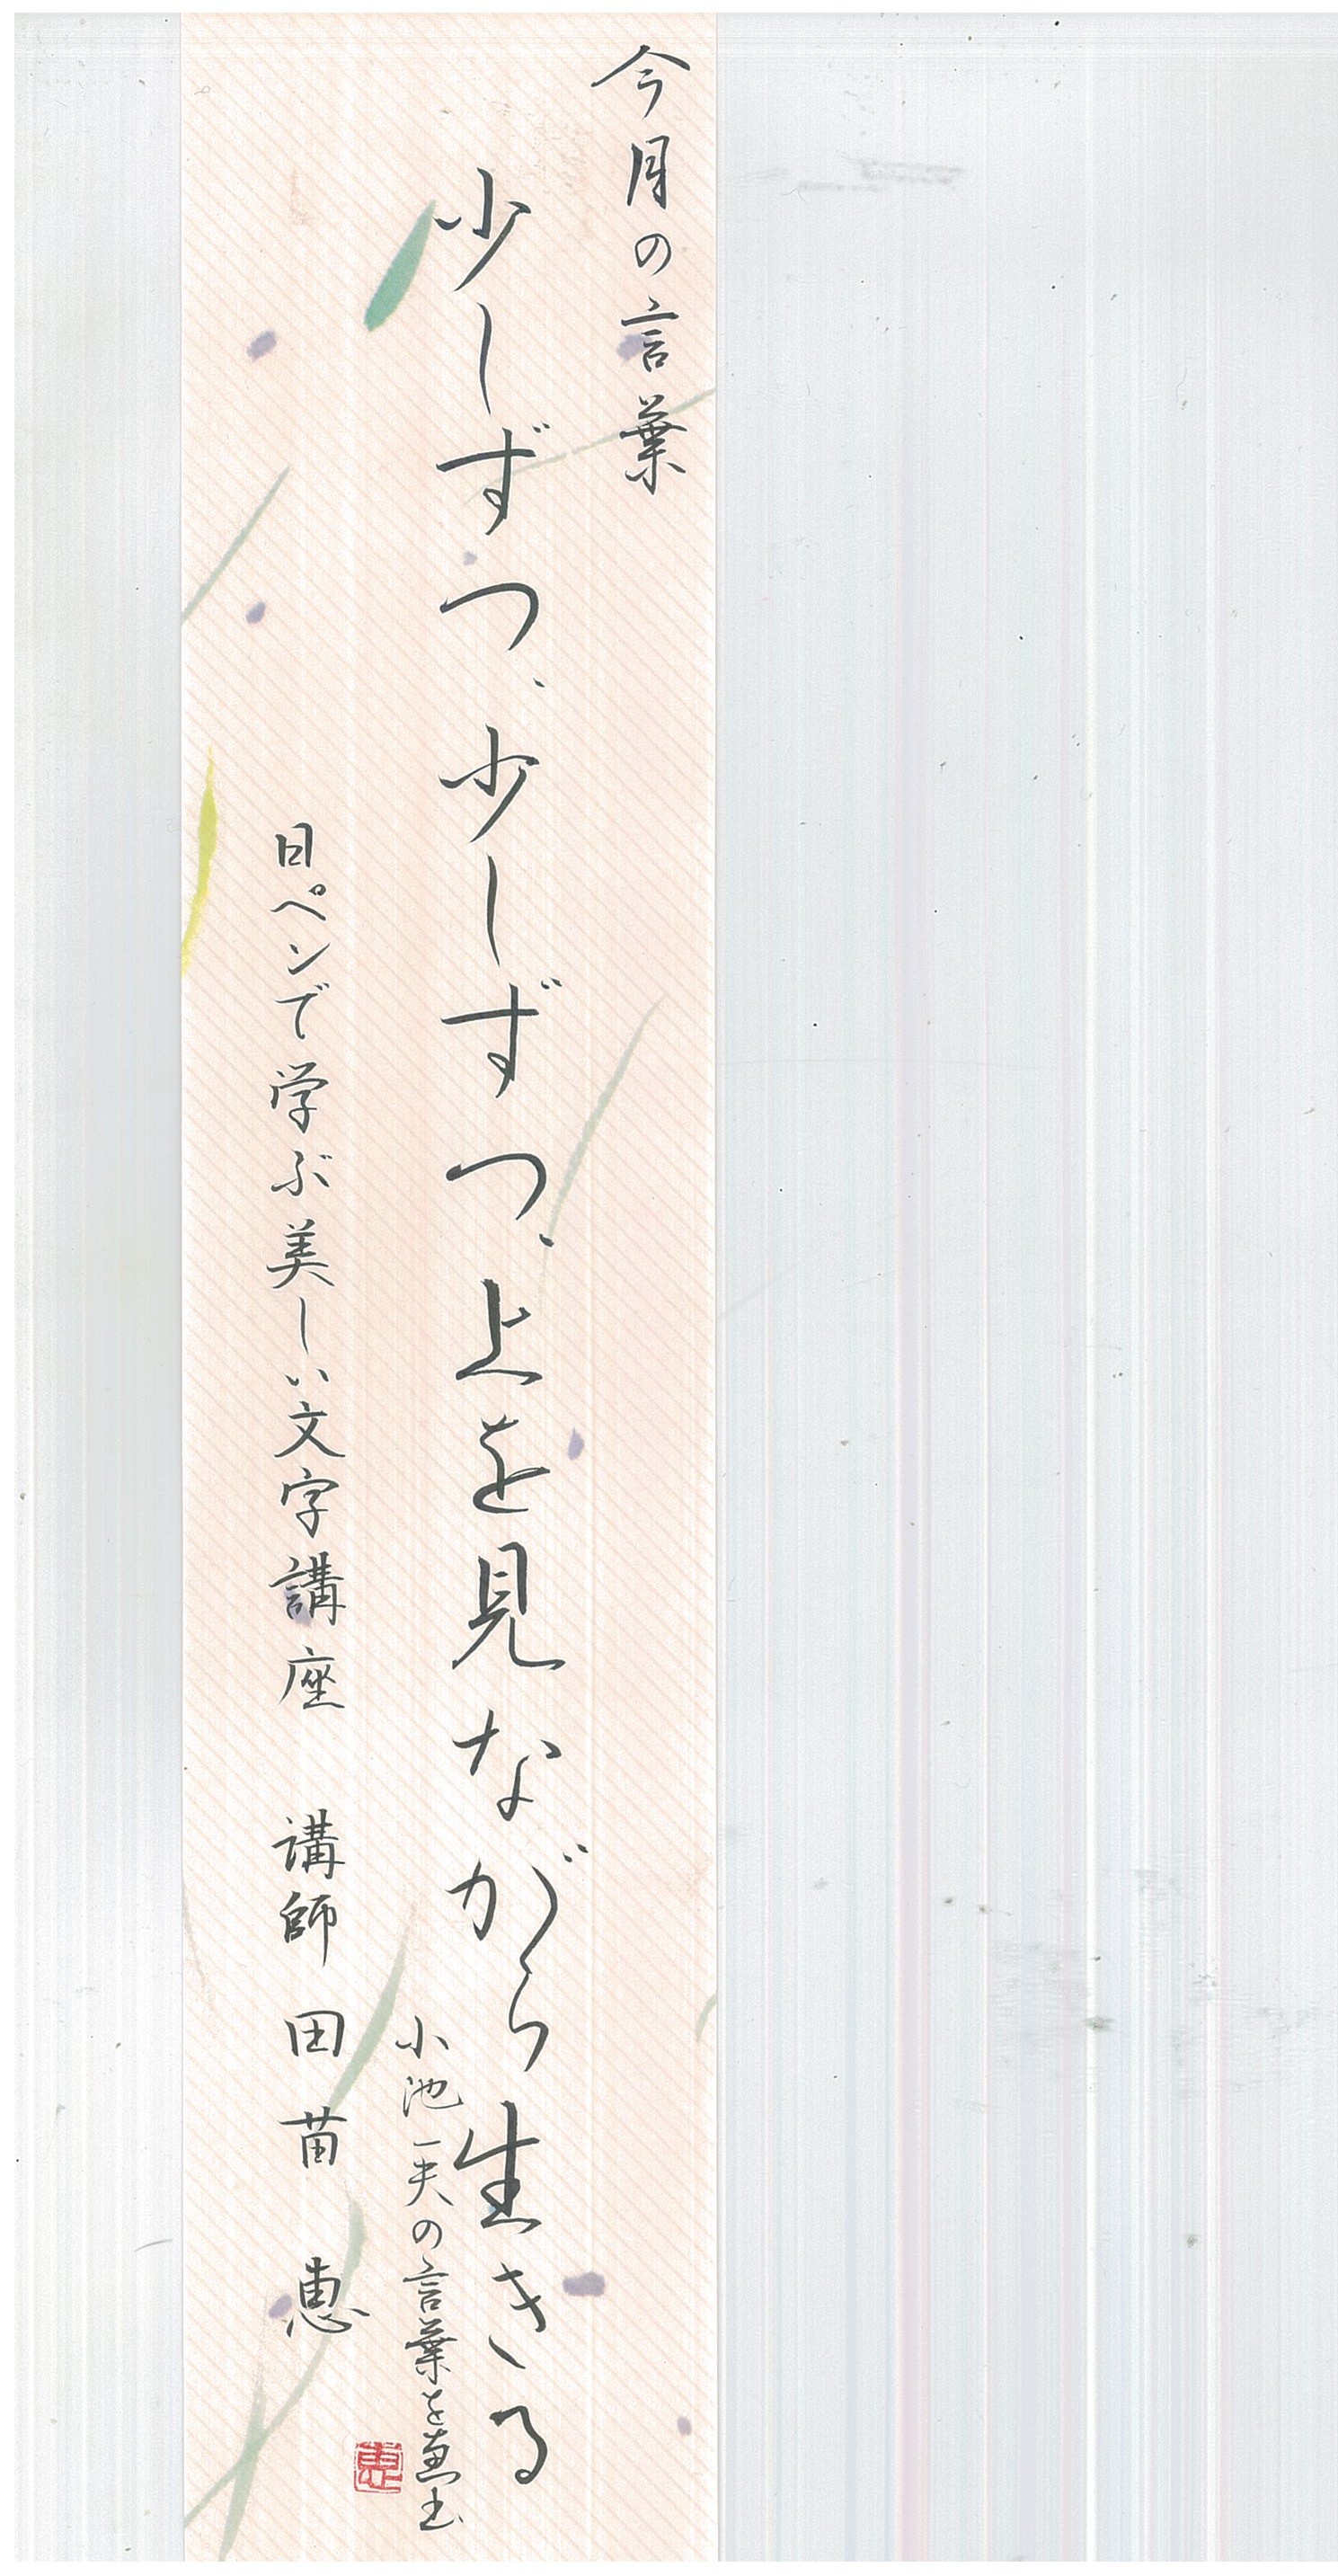 今月の言葉
少しずつ、少しずつ、上を見ながら生きる
小池一夫の言葉を恵書
日ペンで学ぶ美しい文字講座 講師 田苗 恵
恵